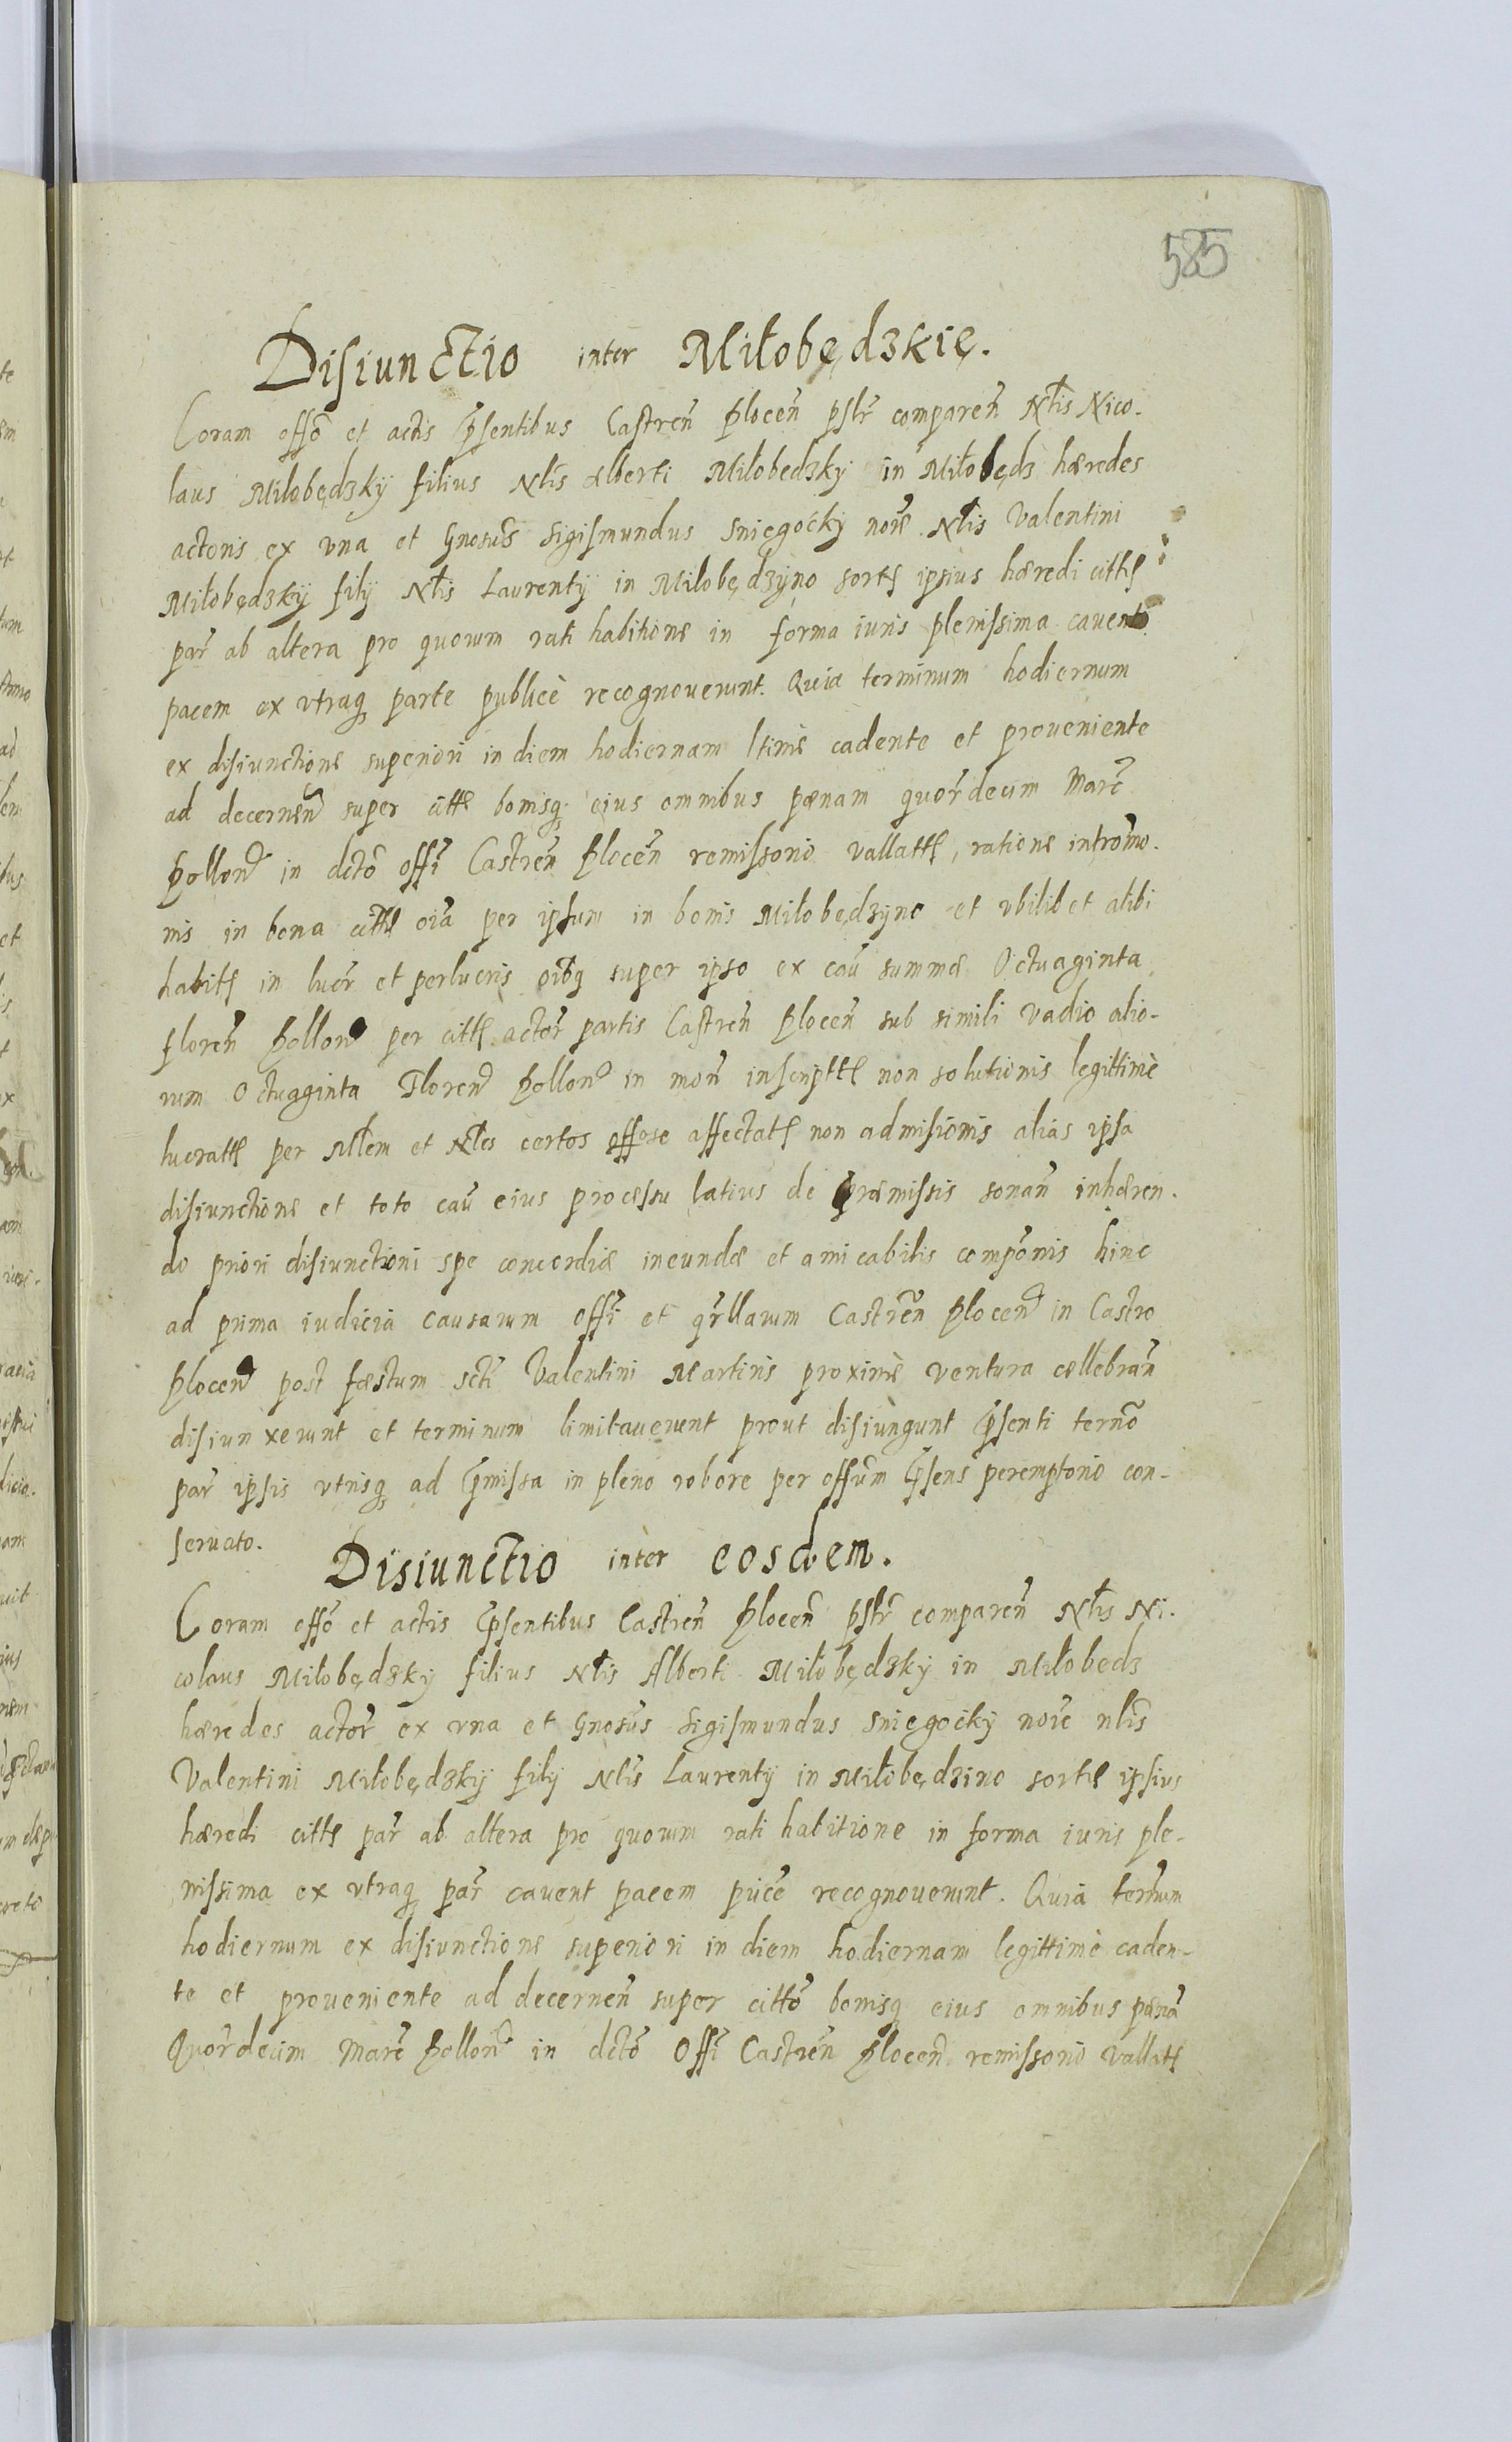 585
Disiunctio inter Miłobędzkię.
Coram offõ et actis p̃sentibus Castreñ Plocen̄ pslr̃ compareñ Nłis Nico-
laus Miłobędzky filius Nłis Alberti Miłobedzky in Miłobędz hæredes
actoris ex vna et Gnosus Sigismundus Sniegoćky noíe Nłis Valentini
Miłobędzky filÿ Nłis Laurentÿ in Miłobędzyno sortę ipsius hæredi citte
par̃ ab altera pro quorum rati habitione in forma iuris plenissima cavent
pacem ex vtraq parte publicè recognoverunt. Quia terminum hodiernum
ex disiunctione superiori in diem hodiernam ltimè cadente et proveniente
ad decerneñ super citte bonisq eius omnibus pænam quor̃decim Marc̃
Pollon̄ in dctõ offĩ Castreñ Plocen̄ remissorio vallatte, ratione introm̃o-
nis in bona citte oĩa per ipsum in bonis Miłobędzyno et vbilibet alibi
habite in lucr̃ et perlucris oĩbq super ipso ex cau͂ summæ Octuaginta
floren̄ Pollon̄ per citte actor̃ partis Castreñ Plocen̄ sub simili vadio alio-
rum Octuaginta Floren̄ Pollon̄ in moñ inscriptte non solutionis legittimè
lucratte per Młem et Nłes certos offose affectate non admisionis alias ipsa
disiunctione et toto cau͂ eius processu latius de præmissis sonañ inhæren-
do priori disiunctioni spe concordiæ ineundæ et amicabilis compõnis hinc
ad prima iudicia causarum offĩ et qr̃llarum Castreñ Plocen̄ in Castro
Plocen̄ post fæstum sctĩ Valentini Martiris proximè ventura cællebrañ
disiunxerunt et terminum limitaverunt prout disiungunt p̃senti terño
par̃ ipsis vtrisq ad p̃missa in pleno robore per offũm p̃sens peremptorio con-
servato.
Disiunctio inter eosdem.
Coram offõ et actis p̃sentibus Castreñ Plocen̄ pslr̃ compareñ Nłis Ni-
colaus Miłobędzky filius Nłis Alberti Miłobędzky in Miłobędz
hæredes actor̃ ex vna et Gnosus Sigismundus Sniegoćky noíe nłis
Valentini Miłobędzky filÿ Nłis Laurentÿ in Miłobędzino sortę ipsius
hæredi citte par̃ ab altera pro quorum rati habitione in forma iuris ple-
nissima ex vtraq par̃ cavent pacem puc̃e recognoverunt. Quia ter̃num
hodiernum ex disiunctione superiori in diem hodiernam legittimè caden-
te et proveniente ad decerneñ super cittõ bonisq eius omnibus pænã
Quor̃decim Marc̃ Pollon̄ in dctõ Offĩ Castreñ Plocen̄ remissorio vallate